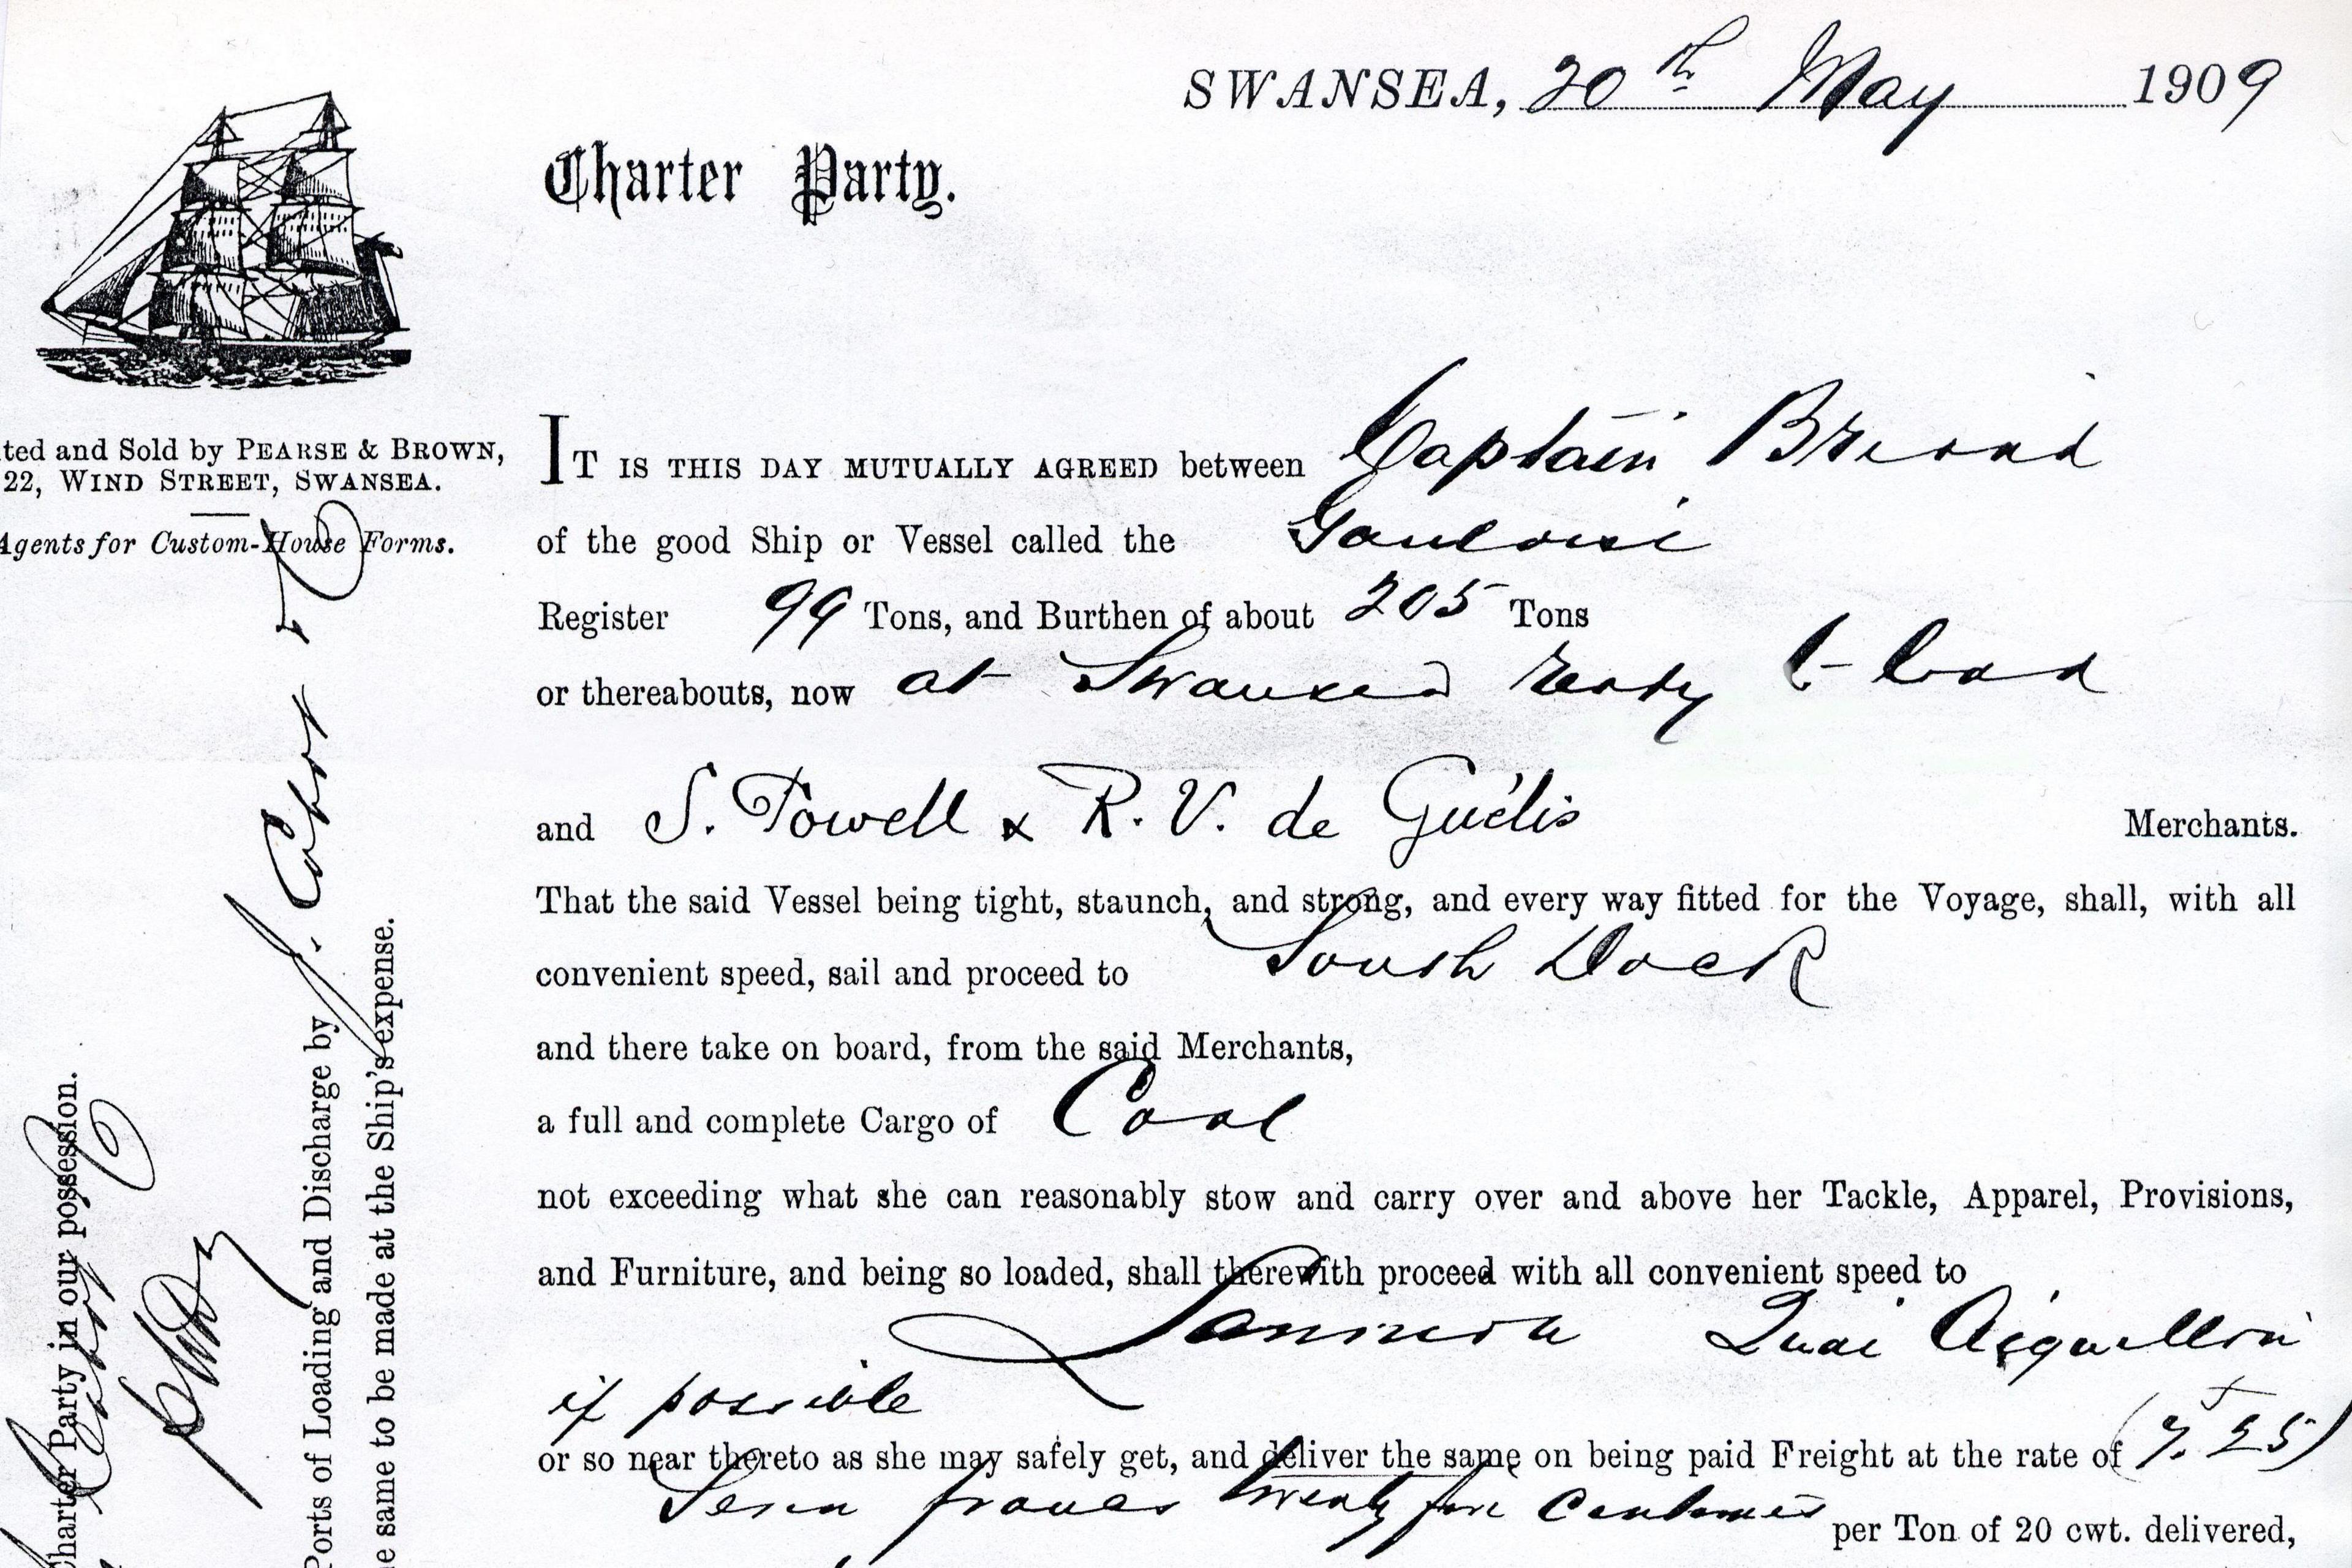 SWANSEA, 20th May 1909
Charter Party.
ted and Sold by PEARSE & BROWN,
22, WIND STREET, SWANSEA.
Agents for Custom-House Forms.
IT IS THIS DAY MUTUALLY AGREED between Captain Briand
of the good Ship or Vessel called the
Register 99 Tons, and Burthen of about 205 Tons
or thereabouts, now at Swansea ready to load
and S. Powell & R. V. de Guélis Merchants.
That the said Vessel being tight, staunch, and strong, and every way fitted for the Voyage, shall, with all
convenient speed, sail and proceed to South Dock
and there take on board, from the said Merchants,
a full and complete Cargo of Coal
not exceeding what she can reasonably stow and carry over and above her Tackle, Apparel, Provisions,
and Furniture, and being so loaded, shall therewith proceed with all convenient speed to
Lannion Quai Aiguillon
if possible
or so near thereto as she may safely get, and deliver the same on being paid Freight at the rate of (7.f 25)
Seven francs twenty five Centimes per Ton of 20 cwt. delivered,
Charter Party in our possession.
Ports of Loading and Discharge by J. Cabot
e same to be made at the Ship's expense.